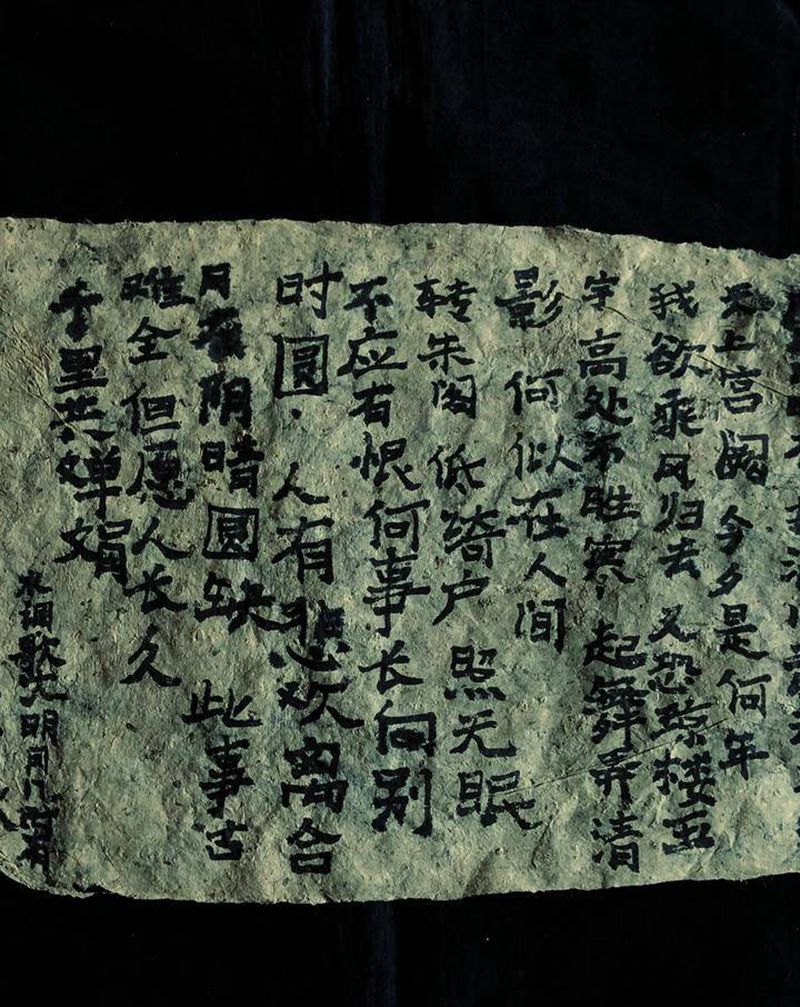 天上宫阙 今夕是何年
我欲乘风归去 又恐琼楼玉
宇 高处不胜寒 起舞弄清
影 何似在人间
转朱阁 低绮户 照无眠
不应有恨何事长向别
时圆. 人有悲欢离合
月有阴晴圆缺 此事古
难全 但愿人长久
千里共婵娟
水调歌头明月几时有